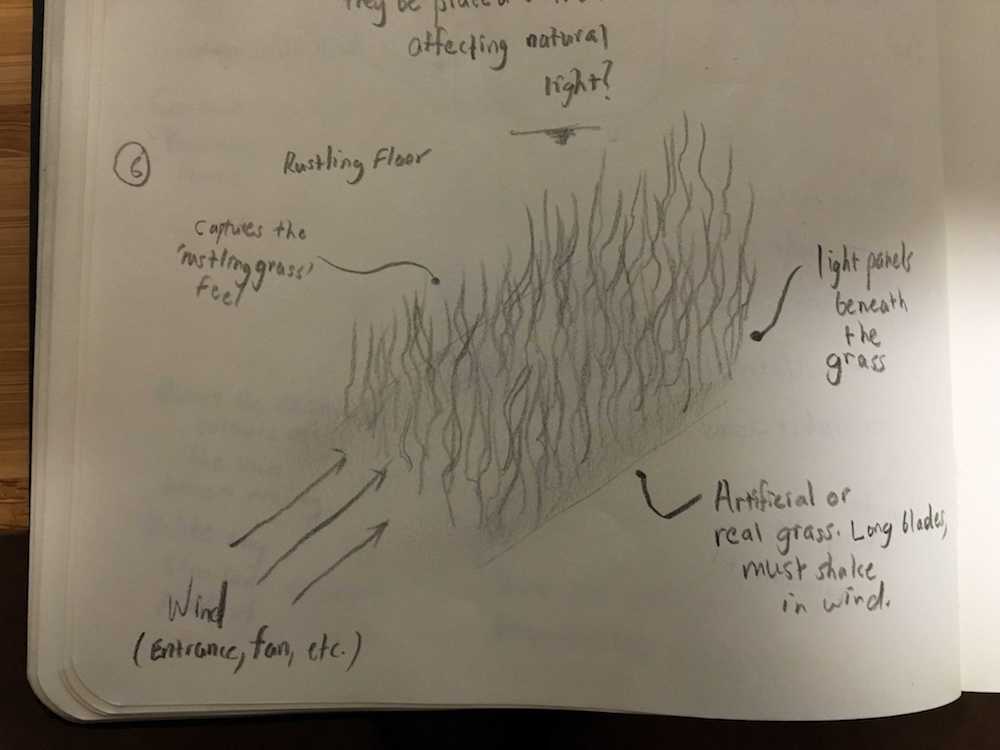 they be placed
affecting natural
light?
6
Rustling Floor
Captures the
'rustling grass'
feel
light panels
beneath
the
grass
Artifical or
real grass. Long blades,
must shake
in wind.
Wind
(Entrance, fan, etc.)